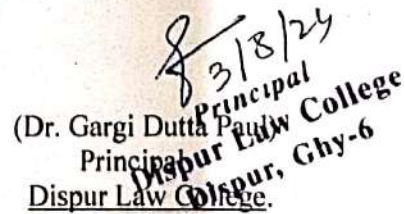 3/8/24
Principal
Dispur Law College
Dispur, Ghy-6
(Dr. Gargi Dutta Paul)
Principal
Dispur Law College.